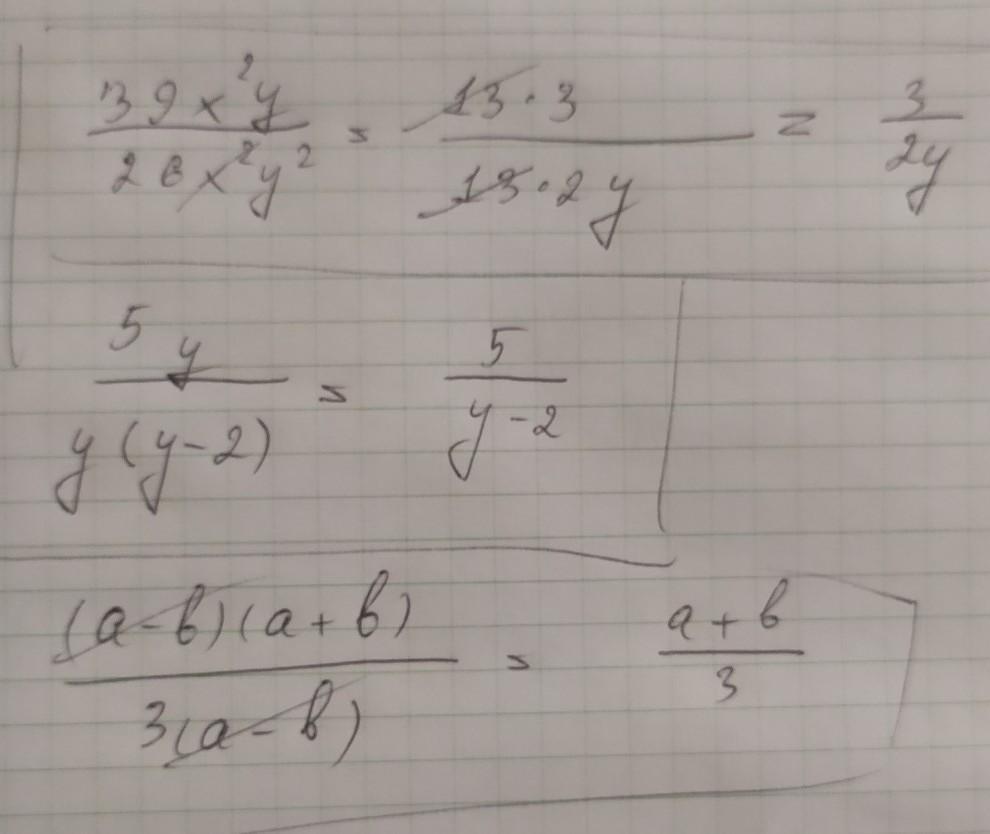 39x²y / 26x²y² = 13·3 / 13·2y = 3 / 2y
5y / y(y-2) = 5 / y-2
(a-b)(a+b) / 3(a-b) = a+b / 3